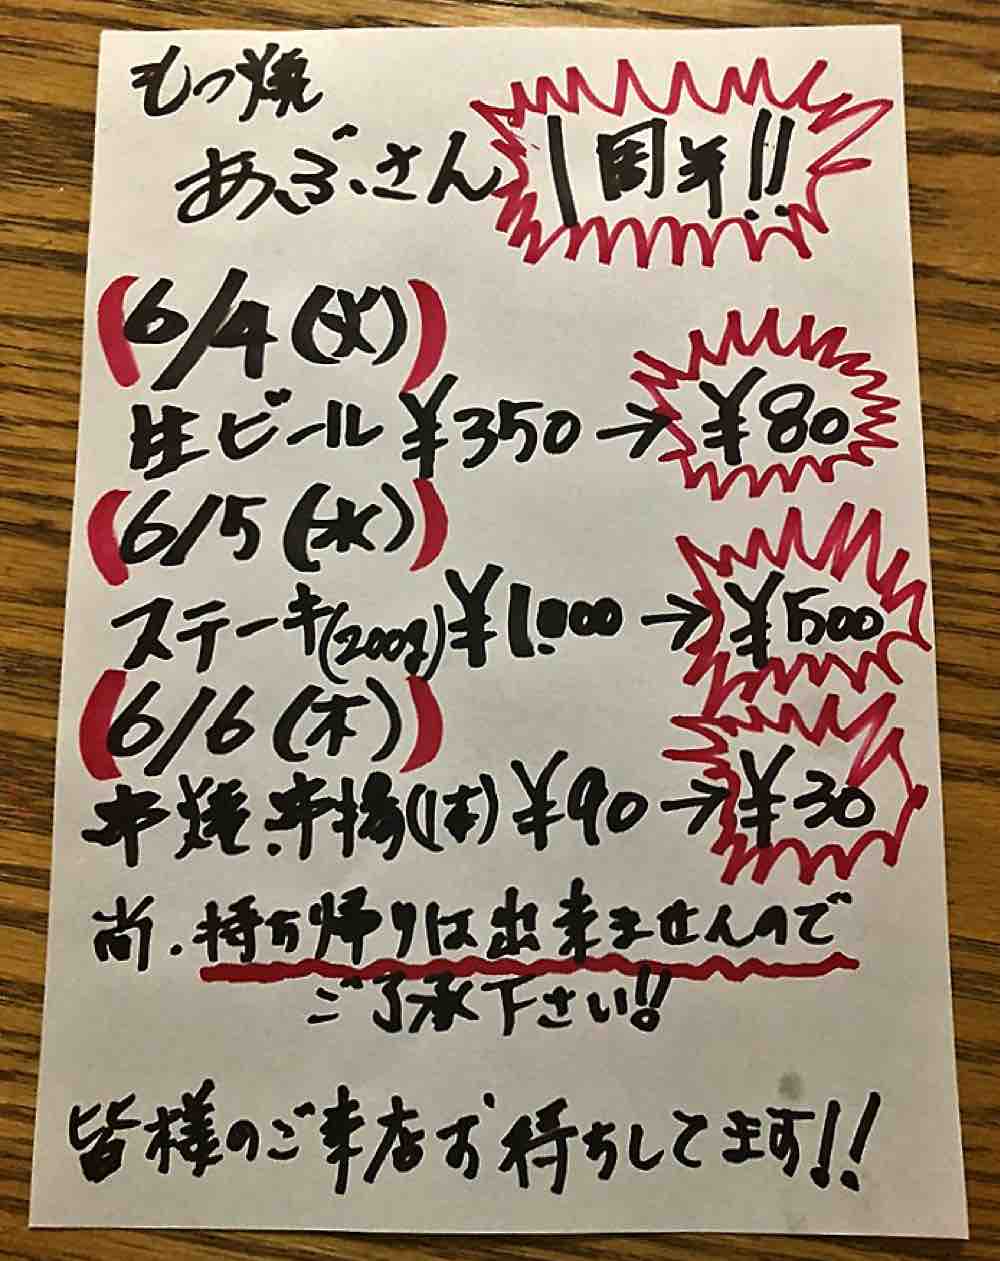 もつ焼
あぶさん 1周年!!
(6/4(火))
生ビール ¥350→¥80
(6/5(水))
ステーキ(200g)¥1.000→¥500
(6/6(木))
串焼.串揚(1本)¥90→¥30
尚.持ち帰りは出来ませんので
ご了承下さい!!
皆様のご来店お待ちしてます!!